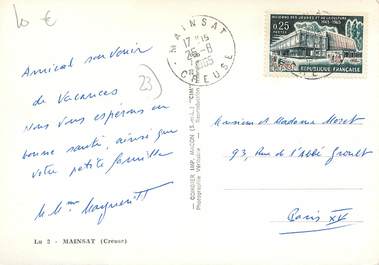 10 €
MAINSAT
17 H 15
26-8
1965
CREUSE
MAISONS DES JEUNES ET DE LA CULTURE
0,25
POSTES
REPUBLIQUE FRANÇAISE
Amical souvenir
de Vacances
23)
Nous vous espérons en
bonne santé, ainsi que
votre petite famille
M. Mme
Monsieur et Madame Moret
93, Rue de l'Abbé Groult
Paris XV
COMBIER IMP. MACON (S.-&-L.) "CIM"
Photographie Véritable - Reproduction
Lu 2 - MAINSAT (Creuse)